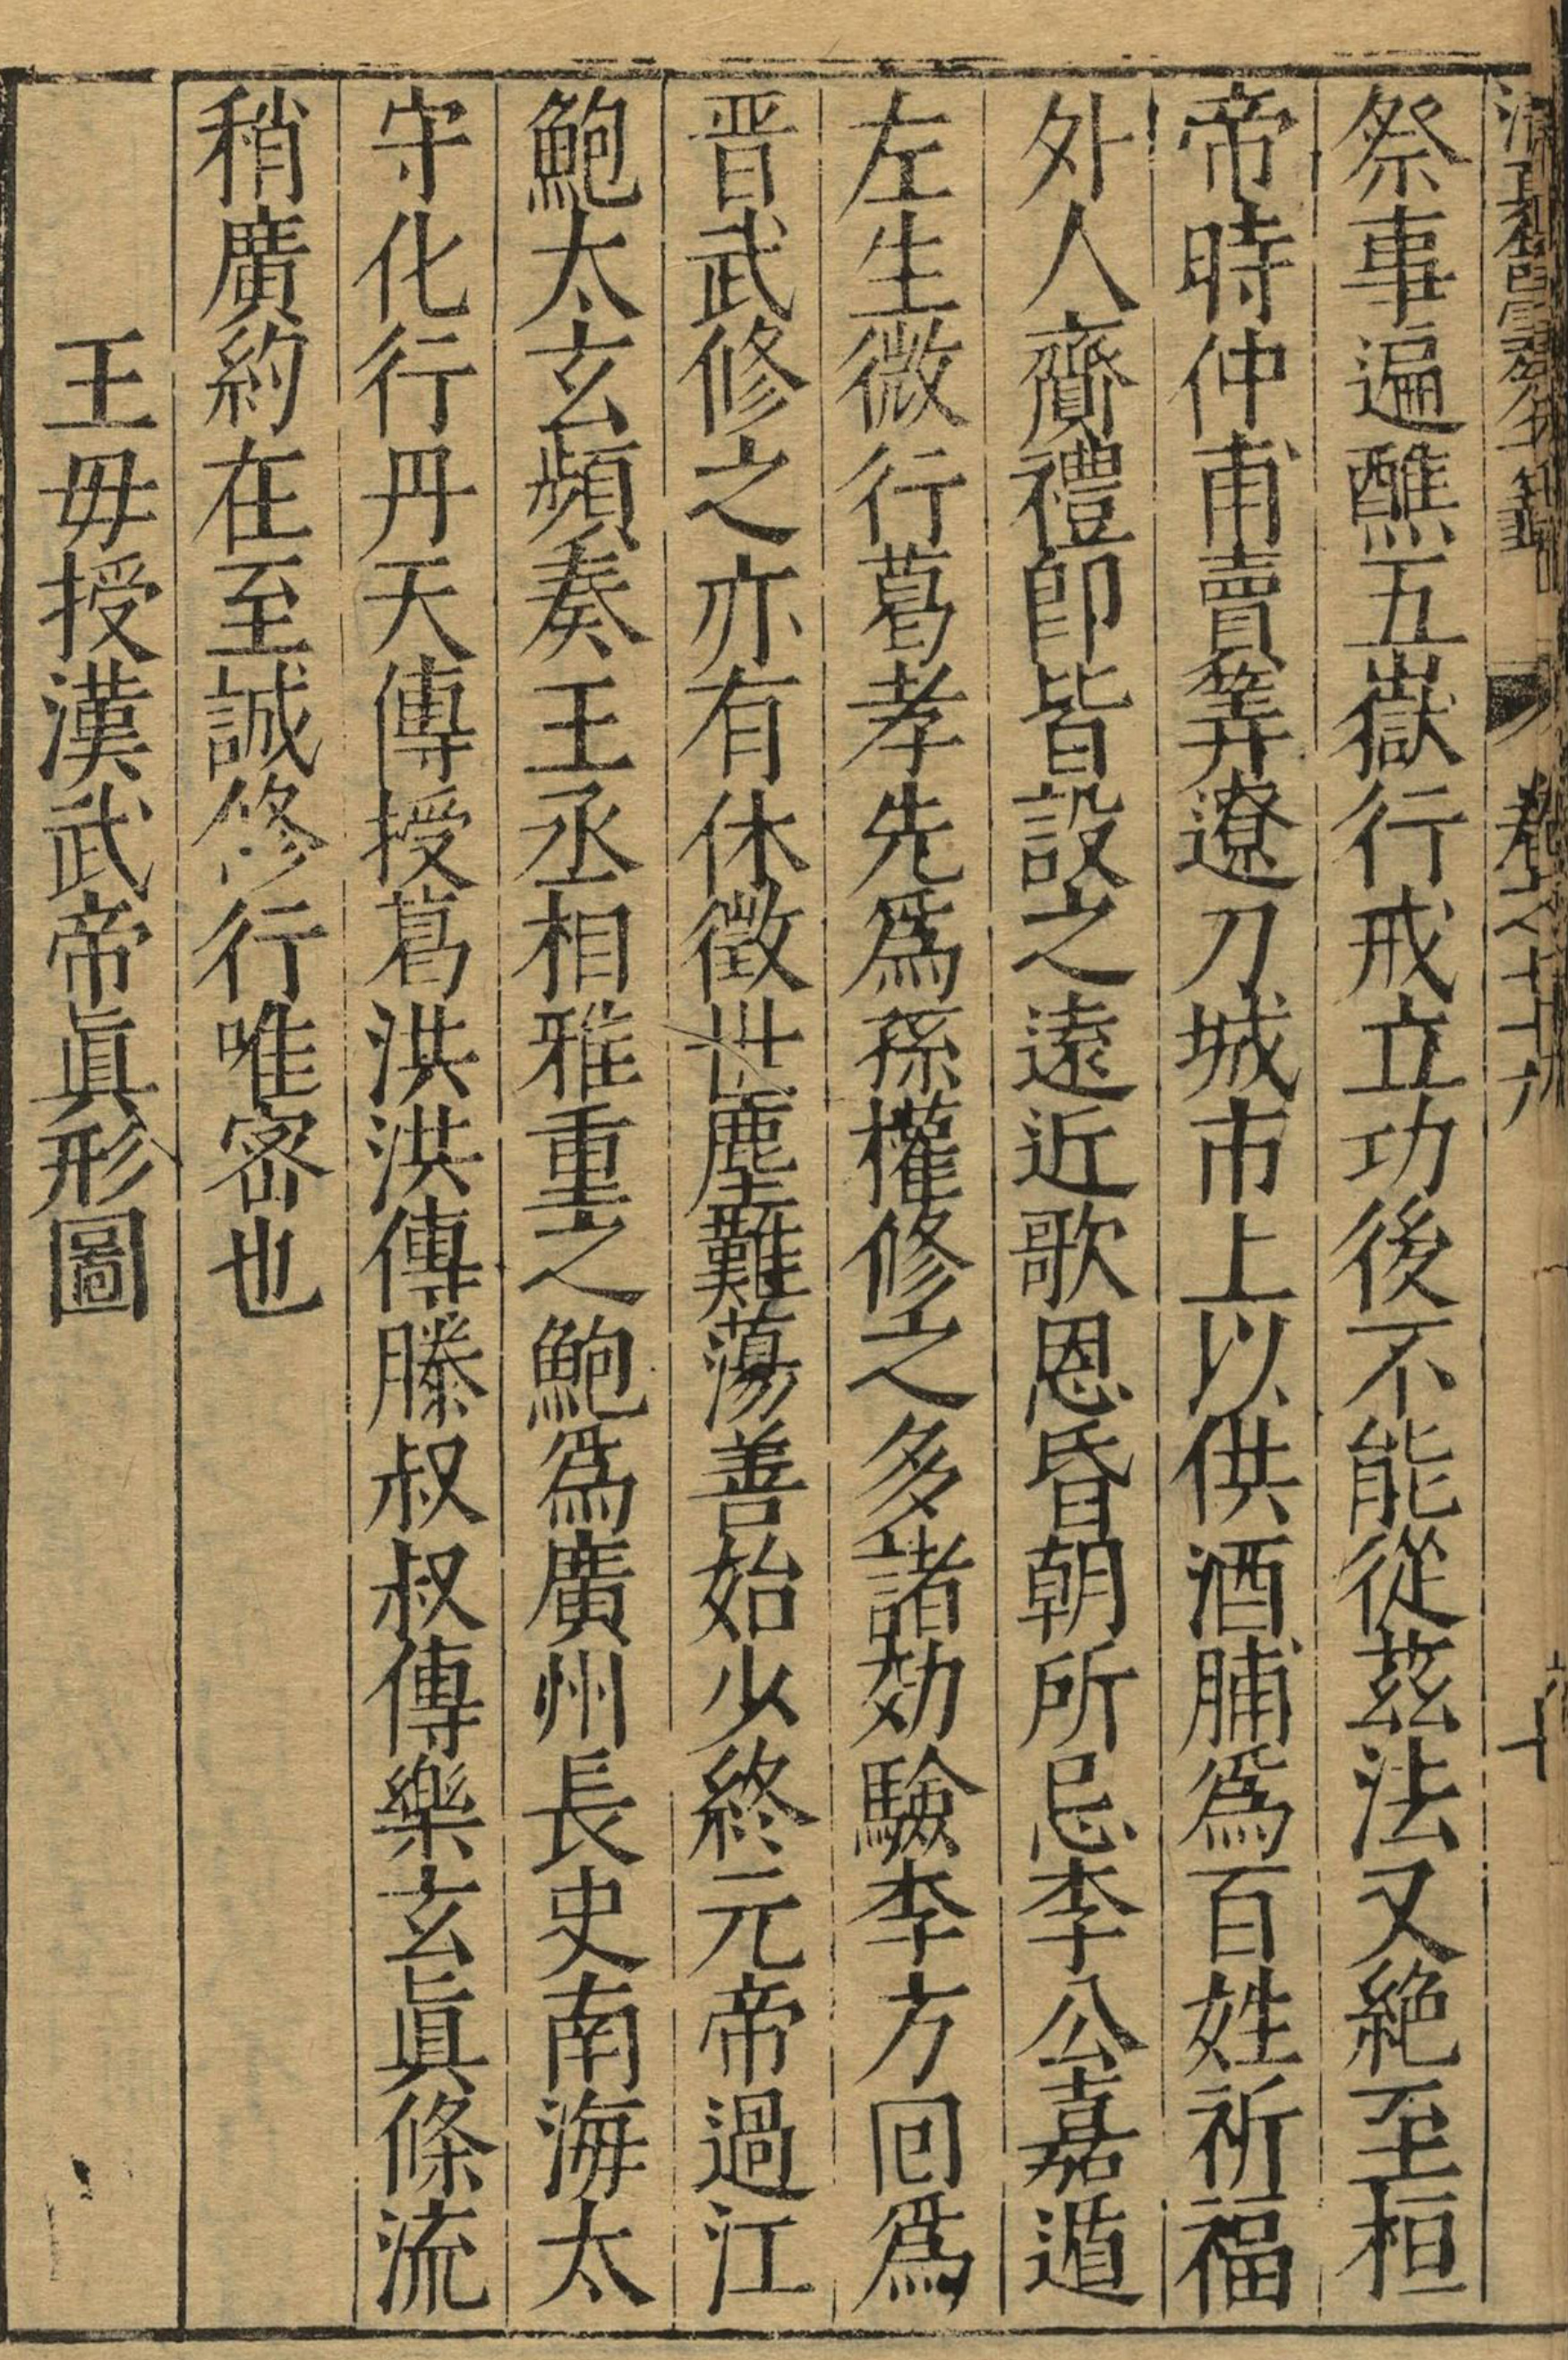 祭事遍醮五嶽行戒立功後不能從茲法又絶至桓
帝時仲甫賣筭遼刀城市上以供酒脯爲百姓祈福
外人齎禮卽皆設之遠近歌恩昏朝所忌李公嘉遁
左生微行葛孝先爲孫權修之多諸効驗李方回爲
晋武修之亦有休徵世塵難蕩善始少終元帝過江
鮑太玄頻奏王丞相雅重之鮑爲廣州長史南海太
守化行丹天傳授葛洪洪傳滕叔叔傳樂玄眞條流
稍廣約在至誠修行唯密也
王毋授漢武帝眞形圖